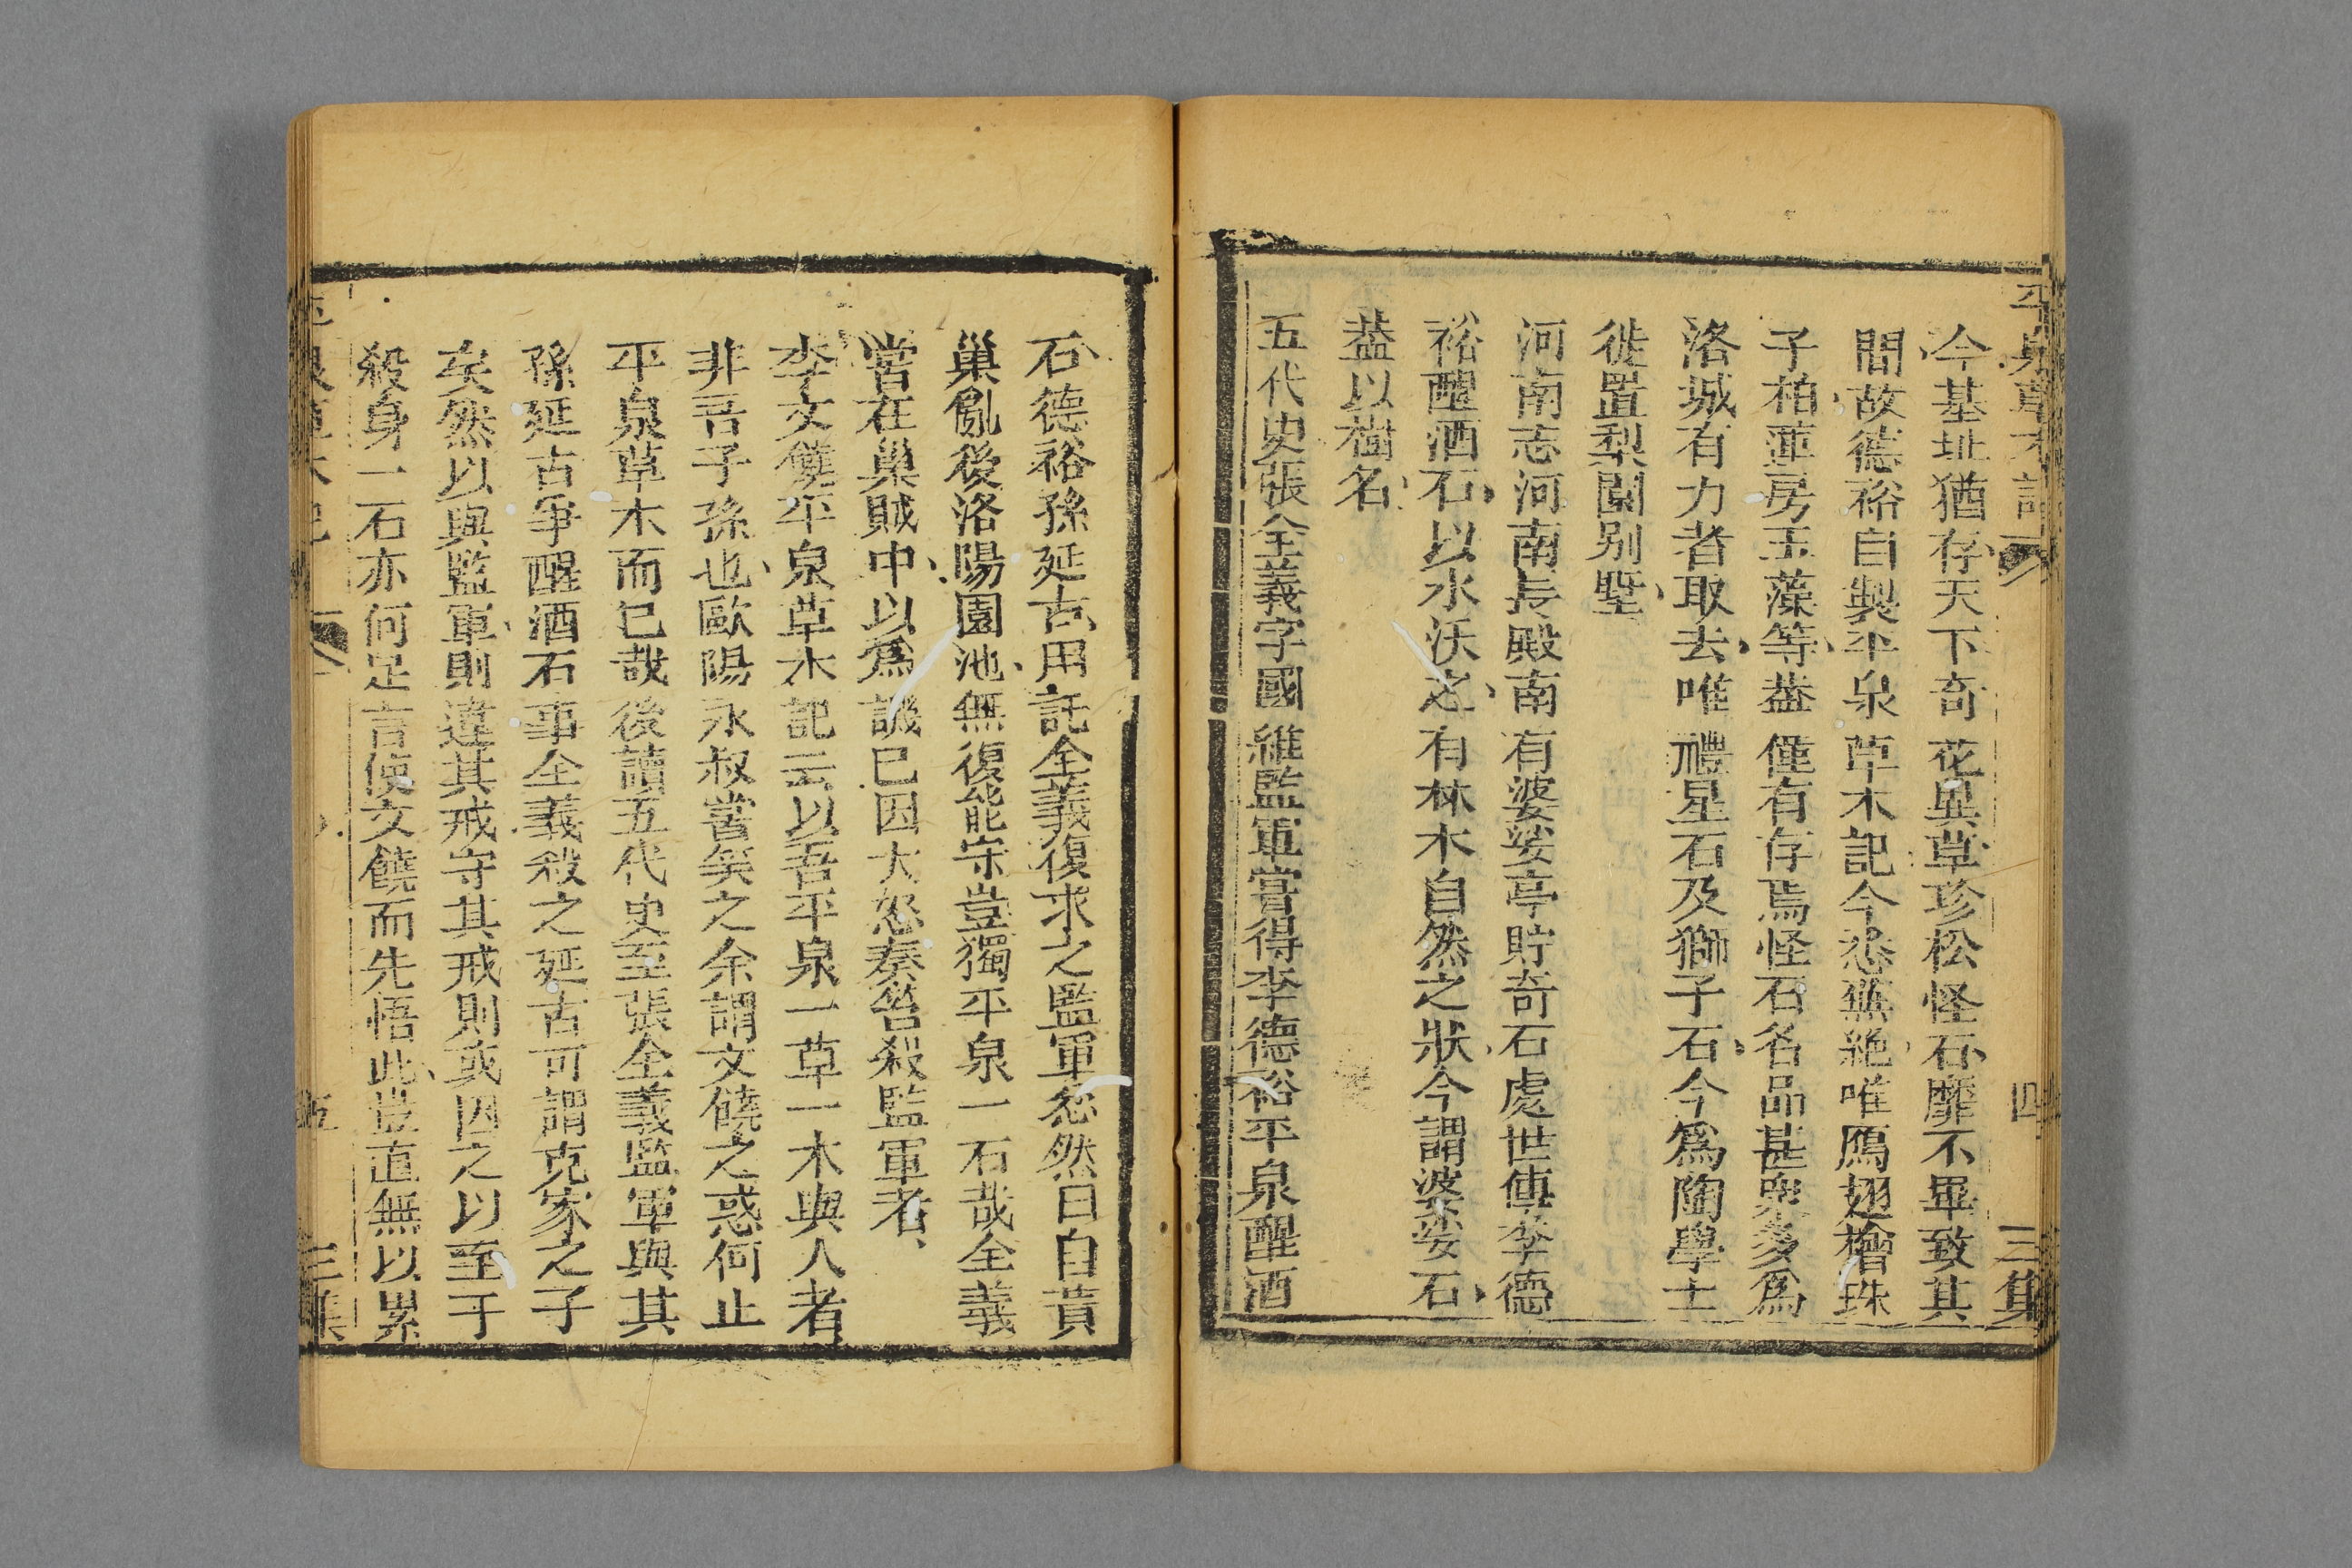 平泉草木記
四
三集
今基址猶存天下奇花異草珍松怪石靡不畢致其
間故德裕自製平泉草木記今悉蕪絶唯鴈翅檜珠
子柏蓮房玉藻等葢僅有存焉怪石名品甚衆多爲
洛城有力者取去唯禮星石及獅子石今爲陶學士
徙置梨園别墅
河南志河南長殿南有婆娑亭貯奇石處世傳李德
裕醒酒石以水沃之有林木自然之狀今謂婆娑石
葢以樹名
五代史張全義字國維監軍嘗得李德裕平泉醒酒
石德裕孫延古用託全義復求之監軍忿然曰自黄
巢亂後洛陽園池無復能守豈獨平泉一石哉全義
嘗在巢賊中以爲譏已因大怒奏笞殺監軍者
李文饒平泉草木記云以吾平泉一草一木與人者
非吾子孫也歐陽永叔嘗笑之余謂文饒之惑何止
平泉草木而已哉後讀五代史至張全義監軍與其
孫延古爭醒酒石事全義殺之延古可謂克家之子
矣然以與監軍則違其戒守其戒則或因之以至于
殺身一石亦何足言使文饒而先悟此豈直無以累
五
三集